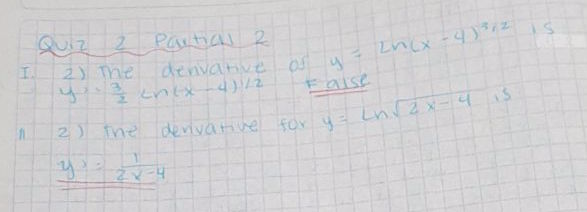 Quiz 2 Partial 2
I. 2) The derivative of y = Ln(x-4)^3/2 is
y' = 3/2 Ln(x-4)^1/2 False
II 2) The derivative for y = Ln√2x-4 is
y' = 1/2x-4